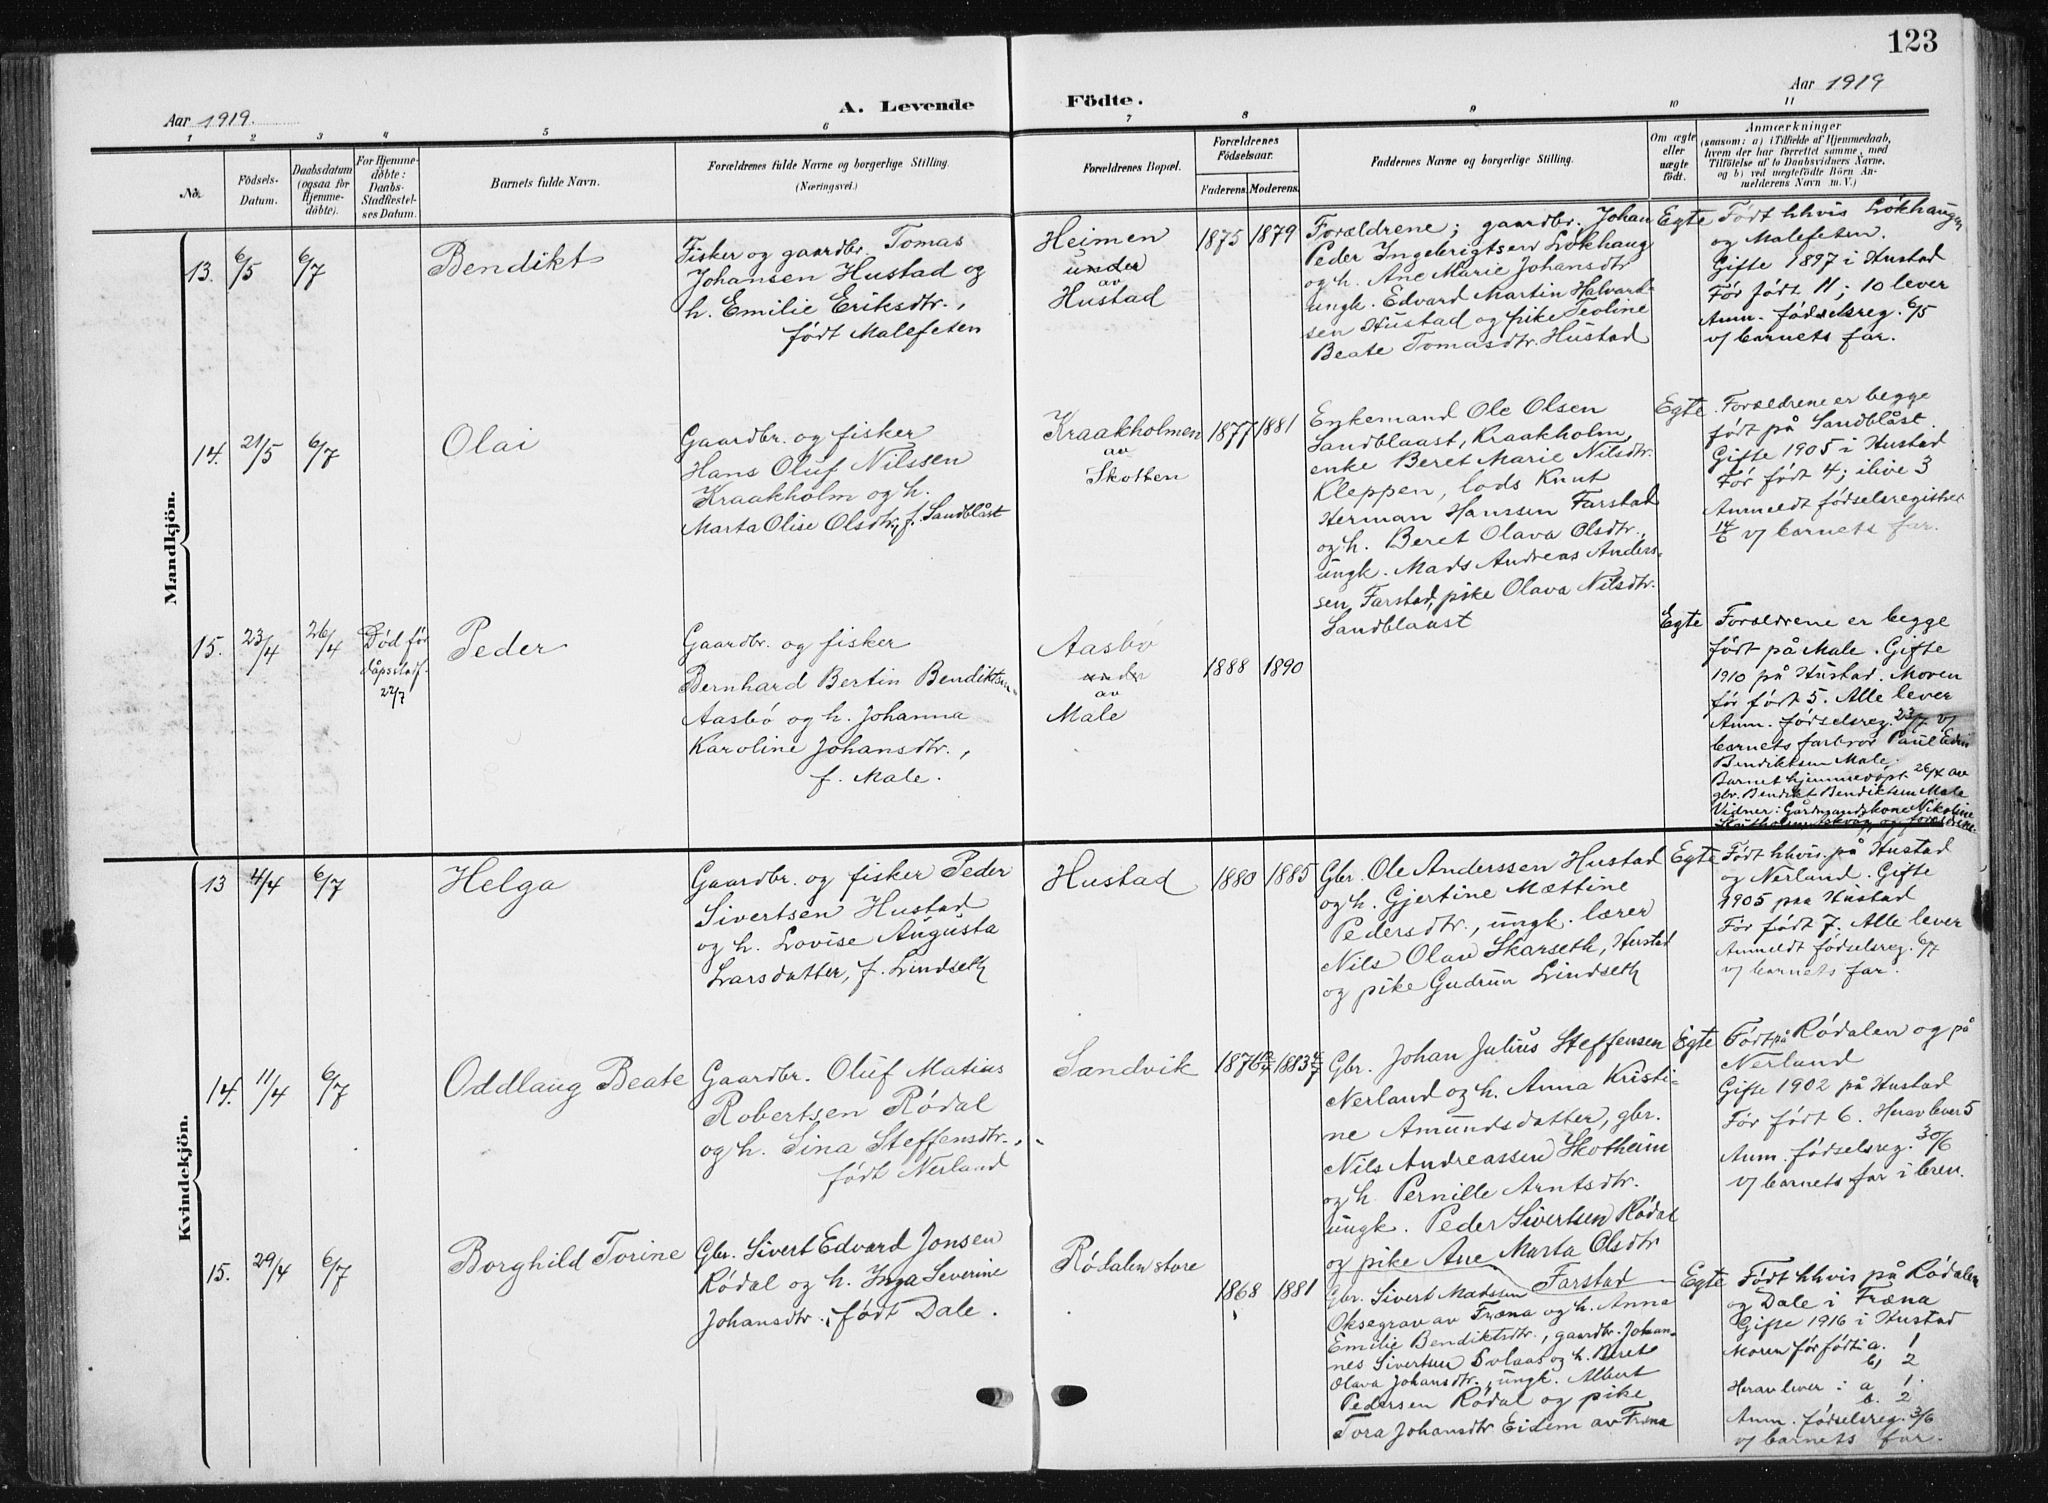 123
Aar 1919.
A. Levende Födte.
Aar 1919
1 2 3 4 5 6 7 8 9 10 11
No.
Födsels-
Datum.
Daabsdatum
(ogsaa for
Hjemme-
döbte).
For Hjemme-
döbte:
Daabs-
Stadfæstel-
ses Datum.
Barnets fulde Navn.
Forældrenes fulde Navne og borgerlige Stilling.
(Næringsvei.)
Forældrenes Bopæl.
Forældrenes
Födselsaar.
Faderens. Moderens.
Faddernes Navne og borgerlige Stilling.
Om ægte
eller
uægte
födt.
Anmærkninger
(saasom: a) i Tilfælde af Hjemmedaab,
hvem der har forrettet samme, med
Tilföielse af to Daabsvidners Navne,
og b) ved uægtefödte Börn An-
melderens Navn m. V.)
Mandkjön.
13. 6/5 6/7
Bendikt
Fisker og gaardbr. Tomas
Johansen Hustad og
h. Emilie Eriksdtr.,
født Malefeten
Heimen
under
av
Hustad
1875 1879
Forældrene; gaardbr. Johan
Peder Ingebrigtsen Løkhaug
og h. Ane Marie Johansdtr
ungk. Edvard Martin Halvard-
sen Hustad og pike Teoline
Beate Tomasdtr. Hustad
Egte
Født hhvis Løkhaugen
og Malefeten.
Gifte 1897 i Hustad
Før født 11; 10 lever
Anm. fødselsreg. 6/5
v/ barnets far.
14. 21/5 6/7
Olai
Gaardbr. og fisker
Hans Oluf Nilssen
Kraakholm og h.
Marta Olise Olsdtr, f. Sandblåst
Kraakholmen
av
Skotten
1877 1881
Enkemand Ole Olsen
Sandblaast, Kraakholm
enke Beret Marie Nilsdtr.
Kleppen, lods Knut
Herman Hanssen Farstad
og h. Beret Olava Olsdtr.,
ungk. Mads Andreas Anders-
sen Farstad, pike Olava Nilsdtr.
Sandblaast
Egte
Forældrene er begge
født på Sandblåst.
Gifte 1905 i Hustad
Før født 4; ilive 3
Anmeldt fødselsregistret
14/6 v/ barnets far.
15. 23/4 26/4
Død før
dåpsstadf.
22/7
Peder
Gaardbr. og fisker
Bernhard Bertin Bendiktsen
Aasbø og h. Johanna
Karoline Johansdtr.,
f. Male.
Aasbø
under
av
Male
1888 1890
Egte
Forældrene er begge
født på Male. Gifte
1910 på Hustad. Moren
før født 5. Alle lever
Anm. fødselsreg. 23/7 v/
barnets farbror Paul Edvin
Bendiktsen Male.
Barnet hjemmedøpt 26/4 av
gbr. Bendikt Bendiktsen Male
Vidner: Gårdmandskone Nikoline
og forældrene
Kvindekjön.
13 4/4 6/7
Helga
Gaardbr. og fisker Peder
Sivertsen Hustad
og h. Lovise Augusta
Larsdatter, f. Lindseth
Hustad
1880 1885
Gbr. Ole Anderssen Hustad
og h. Gjertine Mættine
Pedersdtr., ungk. lærer
Nils Olav Skarseth, Hustad
og pike Gudrun Lindseth
Egte
Født hhvis på Hustad
og Nerland. Gifte
1905 paa Hustad
Før født 7. Alle lever
Anmeldt fødselsreg. 6/7
v/ barnets far.
14. 11/4 6/7
Oddlaug Beate
Gaardbr. Oluf Matius
Robertsen Rødal
og h. Sina Steffensdtr.,
født Nerland
Sandvik
1876 1883
Gbr. Johan Julius Steffensen
Nerland og h. Anna Kristi-
ne Amundsdatter, gbr.
Nils Andreassen Skotheim
og h. Pernille Arntsdtr.
ungk. Peder Sivertsen Rødal
og pike Ane Marta Olsdtr
Farstad
Egte
Født på Rødalen og på
Nerland
Gifte 1902 på Hustad
Før født 6. Herav lever 5
Anm. fødselsreg. 30/6
v/ barnets far i brev.
15. 29/4 6/7
Borghild Torine
Gbr. Sivert Edvard Jonsen
Rødal og h. Inga Severine
Johansdtr., født Dale.
Rødalen store
1868 1881
Gbr. Sivert Madssen
Oksegrav av Fræna og h. Anna
Emilie Bendiktsdtr., gaardbr. Johan-
nes Sivertsen Solaas og h. Berte
Olava Johansdtr., ungk. Albert
Pedersen Rødal og pike
Tora Johansdtr Eidem av Fræna
Egte
Født hhvis på Rødalen
og Dale i Fræna
Gifte 1916 i Hustad
Moren før født: a. 1
b. 2
Herav lever: a 1.
b. 2
Anm. fødselsreg. 3/6
v/ barnets far.